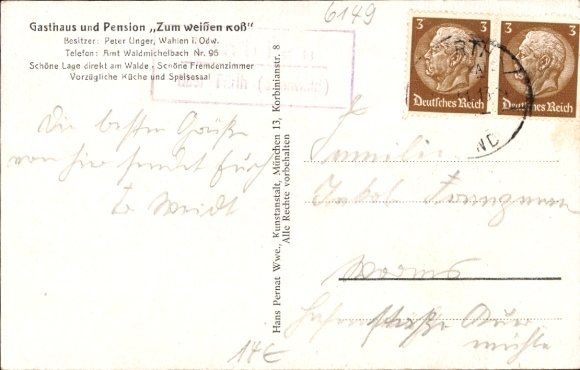 Gasthaus und Pension „Zum weißen Roß“
Besitzer: Peter Unger, Wahlen i. Odw.
Telefon: Amt Waldmichelbach Nr. 96
Schöne Lage direkt am Walde - Schöne Fremdenzimmer
Vorzügliche Küche und Speisesaal
6149
3 3
Deutsches Reich
3 3
Deutsches Reich
Die besten Grüße
von hier sendet Euch
Weidt
Hans Pernat Wwe., Kunstanstalt, München 13, Korbinianstr. 8
Alle Rechte vorbehalten
Familie
Jakob
Worms
mühle
14€